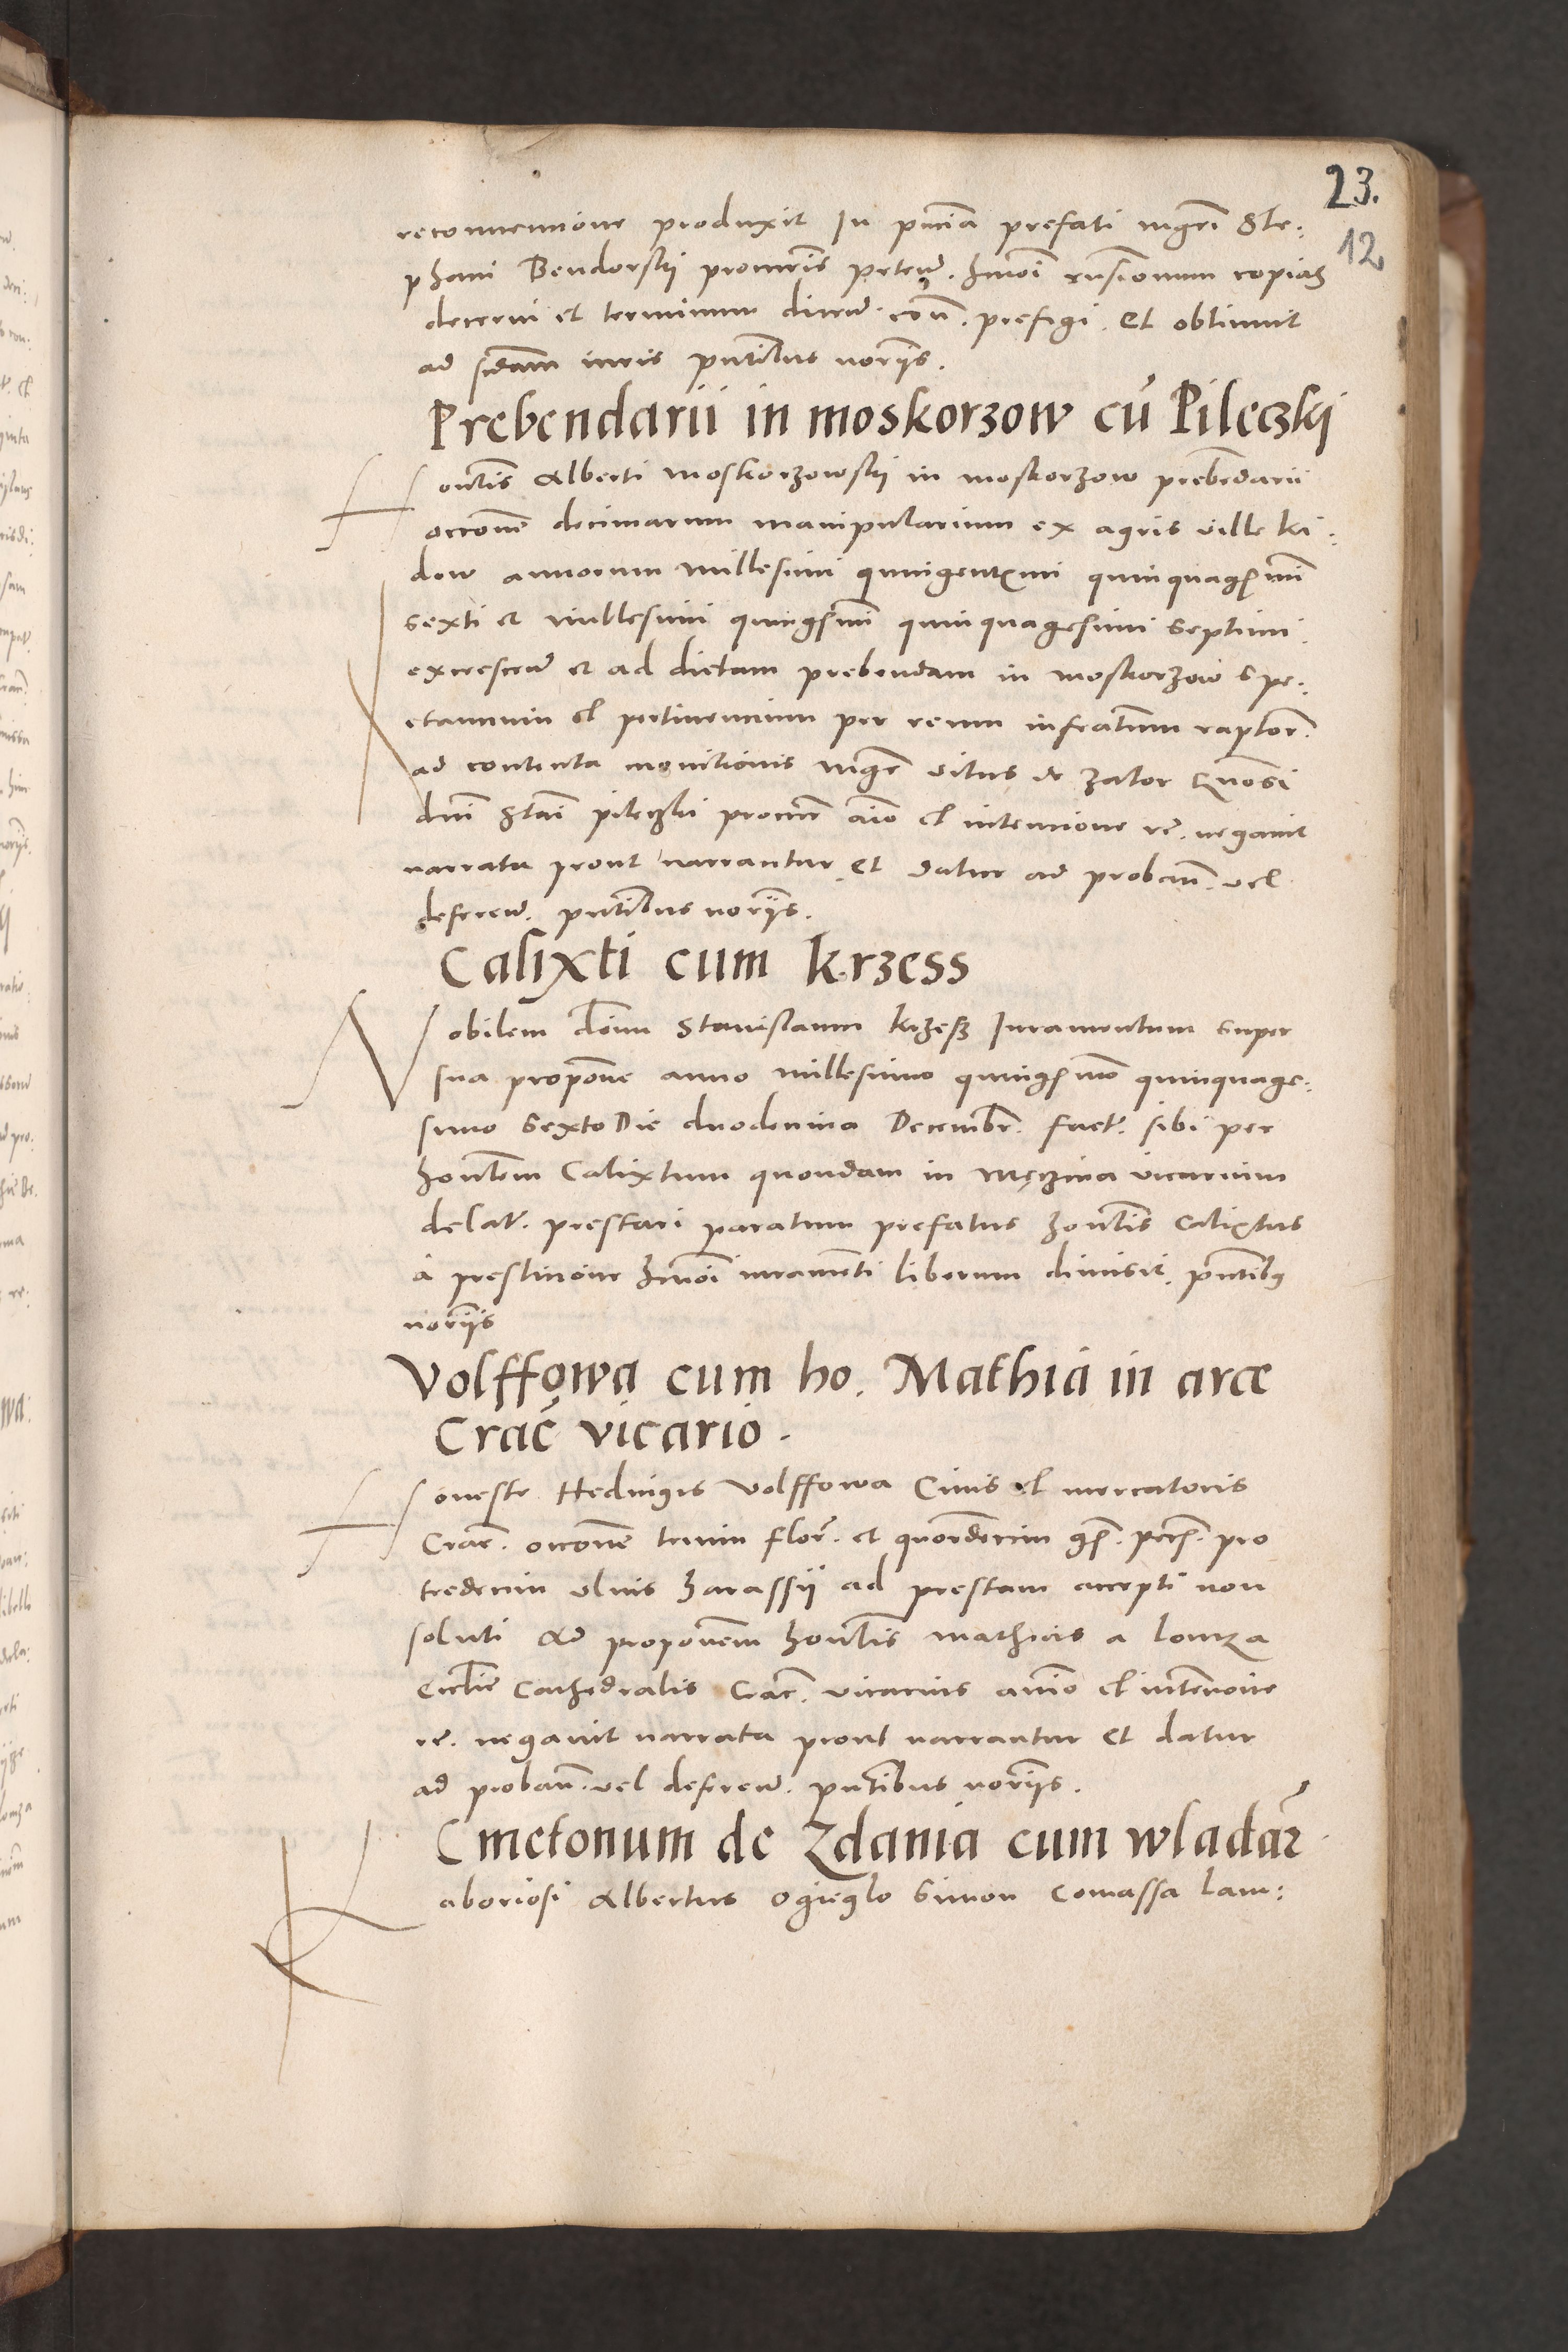 23.
12
reconuencione produxit In pncia prefati mgri Ste:
phani Bendorskii procuris peten. hmoi rusionum copias
decerni et terminum dicen. con. prefigi. Et obtinuit
ad scdam iuris pntibus noriis.
Prebendarii in moskorzow cu Pileczki
Hontis Alberti Moskorzowskii in moskorzow prebedarii
occone decimarum manipularium ex agris ville Ki:
dow annorum Millesimi quingentimi quinquagesmi
sexti et Millesimi quingesmi quinquagesimi septimi
excrescen et ad dictam prebendam in moskorzow spe:
ctancium et pertinencium per reum infratum raptor.
ad contenta monitionis Mgr vitus de zator Gnosi
dni Stai pileczki procur aio et intencione re. negauit
narrata prout narrantur. et datur ad proban. vel
deferen. pntibus noriis.
Calixti cum Krzess
Nobilem dnum Stanislaum krzess Iuramentum super
sua propone anno Millesimo quingesmo quinquage:
simo sexto Die duodecima Decembr. fact. sibi per
hontem Calixtum quondam in Męczina vicarium
delat. prestari paratum prefatus hontis Calixtus
a prestacione hmoi iuramenti liberum dimisit. pntibus
noriis
Volffowa cum ho. Mathia in arce
Crac vicario.
Honeste Heduigis Volffowa Ciuis et mercatoris
Crac. occone trium flor. et quordecim gs. pecs. pro
tredecim vlnis harassii ad prestam accepti non
soluti Ad proponem hontis mathias a lomza
Ecclie Cathedralis Crac. vicarius animo et intencione
re. negauit narrata prout narrantur Et datur
ad proban. vel deferen. pntibus noriis.
Cmetonum de Zdania cum wladar
Laboriosi Albertus Ogieglo Simon Comassa lam: